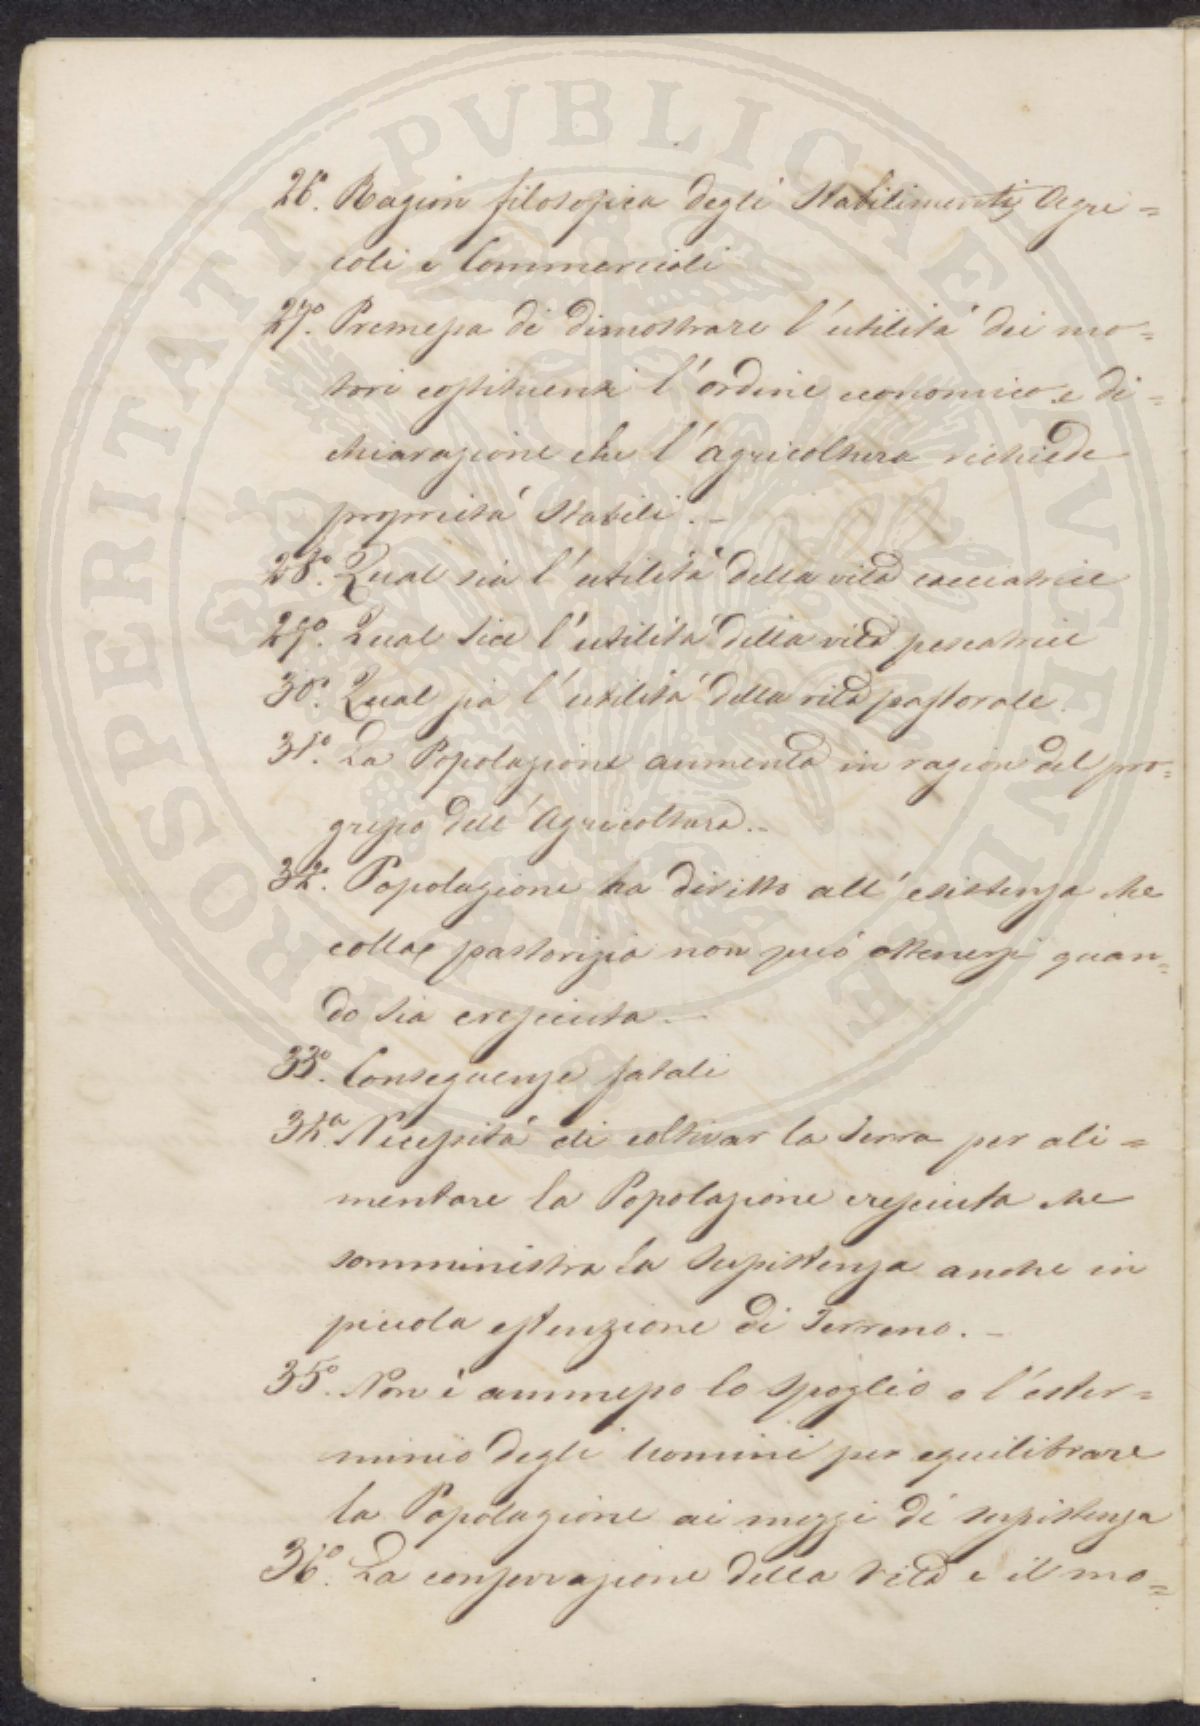 26.° Ragion filosofica degli Stabilimenti Agri=
coli e Commerciali
27.° Premessa di dimostrare l'utilità dei mo=
tori costituenti l'ordine economico e di=
chiarazione che l'agricoltura richiede
proprietà stabili.-
28.° Qual sia l'utilità della vita cacciatrice
29.° Qual sia l'utilità della vita pescatrice
30.° Qual sia l'utilità della vita pastorale.
31.° La Popolazione aumenta in ragion del pro=
gresso dell'Agricoltura.-
32.° Popolazione ha diritto all'esistenza che
colla pastorizia non può ottenersi quan=
do sia cresciuta.-
33.° Conseguenze fatali
34.ª Necessità di coltivar la Terra per ali=
mentare la Popolazione cresciuta che
somministra la sussistenza anche in
piccola estenzione di Terreno.-
35.° Non è ammesso lo spoglio o l'ester=
minio degli uomini per equilibrare
la Popolazione ai mezzi di sussistenza
36.° La conservazione della vita è il mo=
PROSPERITATI PVBLICAE AVGENDAE